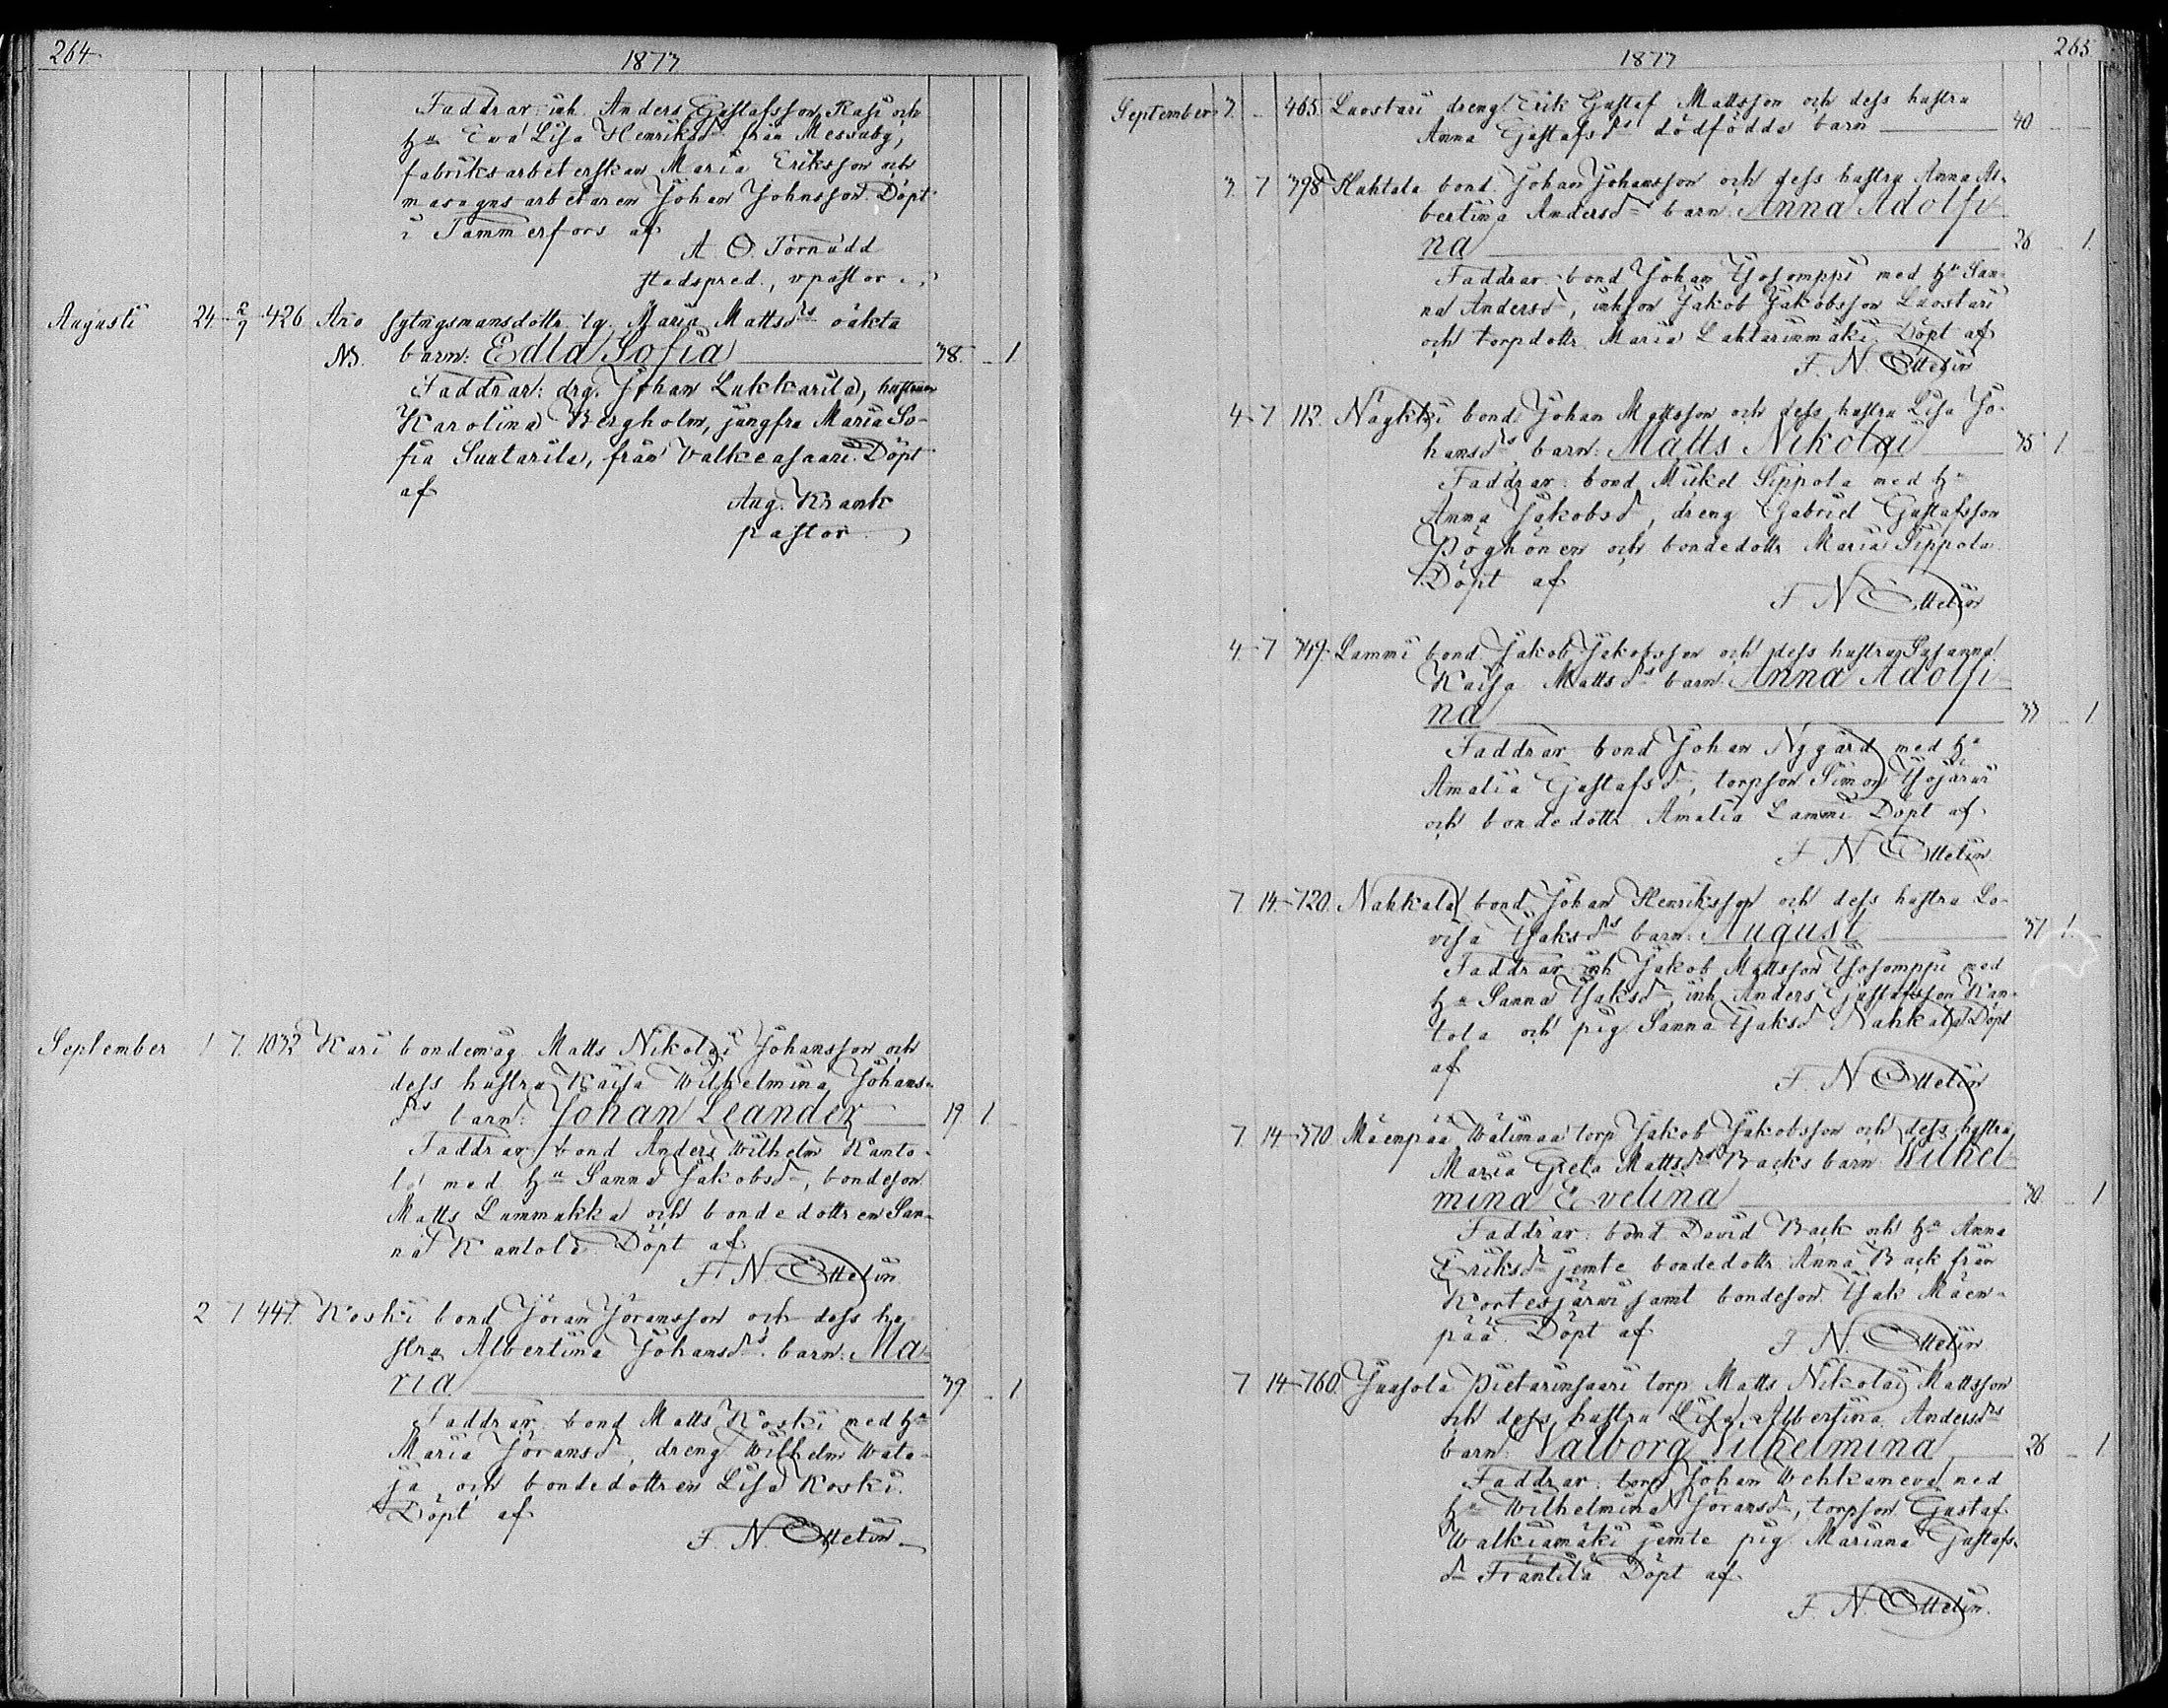 264
1873
Faddrar: inh. Anders Gustafsson Rasi och
hu Eva Lisa Henriksdr från Messuby,
fabriksarbeterskan Maria Eriksson och
masugnsarbetaren Johan Johnsson. Döpt
i Tammerfors af
A. O. Törnudd
stadspred., vpastor
Augusti 24. 2/9 426. Aro sytngsmansdottr. lg. Maria Mattsdrs oäkta
NB. barn: Edla Sofia 38. - 1
Faddrar: drg. Johan Lukkarila, hustrun
Karolina Bergholm, jungfru Maria So-
fia Suutarila, från Valkeasaari. Döpt
af Aug. Krank
pastor
September 1 7. 1032 Kari bondemåg Matts Nikolai Johansson och
dess hustru Kaisa Wilhelmina Johans-
drs barn: Johan Leander 19 1. -
Faddrar: bond Anders Wilhelm Kanto-
la med hu Sanna Jakobsdr, bondeson
Matts Lummukka och bondedottren San-
na Kantola. Döpt af
F. N. Ottelin
2 7 447. Koski bond Jöran Jöransson och dess hu-
stru Albertina Johansdrs. barn: Ma-
ria 39 - 1
Faddrar: bond Matts Koski med hu
Maria Jöransdr, dreng Wilhelm Wata-
ja, och bondedottren Lisa Koski.
Döpt af
F. N. Ottelin
1873
265
September 3. - 465. Luostari dreng Erik Gustaf Mattsson och dess hustru
Anna Gustafsdrs dödfödda barn 40 - -
3. 7 398 Huhtala bond. Johan Johansson och dess hustru Anna Al-
bertina Andersdr barn: Anna Adolfi-
na 26 - 1.
Faddrar: bond Johan Isosomppi med hu San-
na Andersdr, inhson Jakob Jakobsson Luostari
och torpdottr. Maria Lahtarinmäki. Döpt af
F. N. Ottelin
4 7 112. Näykki bond Johan Mattsson och dess hustru Lisa Jo-
hansdrs barn: Matts Nikolai 35 1 -
Faddrar: bond Mickel Sippola med hu
Anna Jakobsdr, dreng Gabriel Gustafsson
Pöyhönen och bondedottr Maria Sippola.
Döpt af
F. N. Ottelin
4. 7 349. Lammi bond Jakob Jakobsson och dess hustru Susanna
Kaisa Mattsdrs barn: Anna Adolfi-
na 33 - 1
Faddrar: bond Johan Nygård med hu
Amalia Gustafsdr, torpson Simon Isojärvi
och bondedottr. Amalia Lammi. Döpt af
F. N. Ottelin
7. 14. 720. Nahkala bond Johan Henriksson och dess hustru Lo-
visa Isaksdrs barn: August 37 1. -
Faddrar: inh Jakob Mattsson Isosomppi med
hu Sanna Isaksdr, inh Anders Gustafsson Kan-
tola och pig. Sanna Isaksdr Nahkala. Döpt
af
F. N. Ottelin
7. 14 370. Mäenpää Wälimaa torp Jakob Jakobsson och dess hustru
Maria Greta Mattsdrs Backs barn Wilhel-
mina Evelina 30. - 1
Faddrar: bond David Back och hu Anna
Eriksdr jemte bondedottr. Anna Back från
Kortesjärvi samt bondeson Isak Mäen-
pää. Döpt af
F. N. Ottelin
7 14 760. Juusola Pietarinsaari torp. Matts Nikolai Mattsson
och dess hustru Lisa Albertina Andersdrs
barn: Valborg Vilhelmina 26 - 1
Faddrar: torp Johan Wehkaneva med
hu Wilhelmina Jöransdr, torpson Gustaf
Walkiamäki jemte pig. Mariana Gustafs-
dr Fräntilä. Döpt af
F. N. Ottelin.